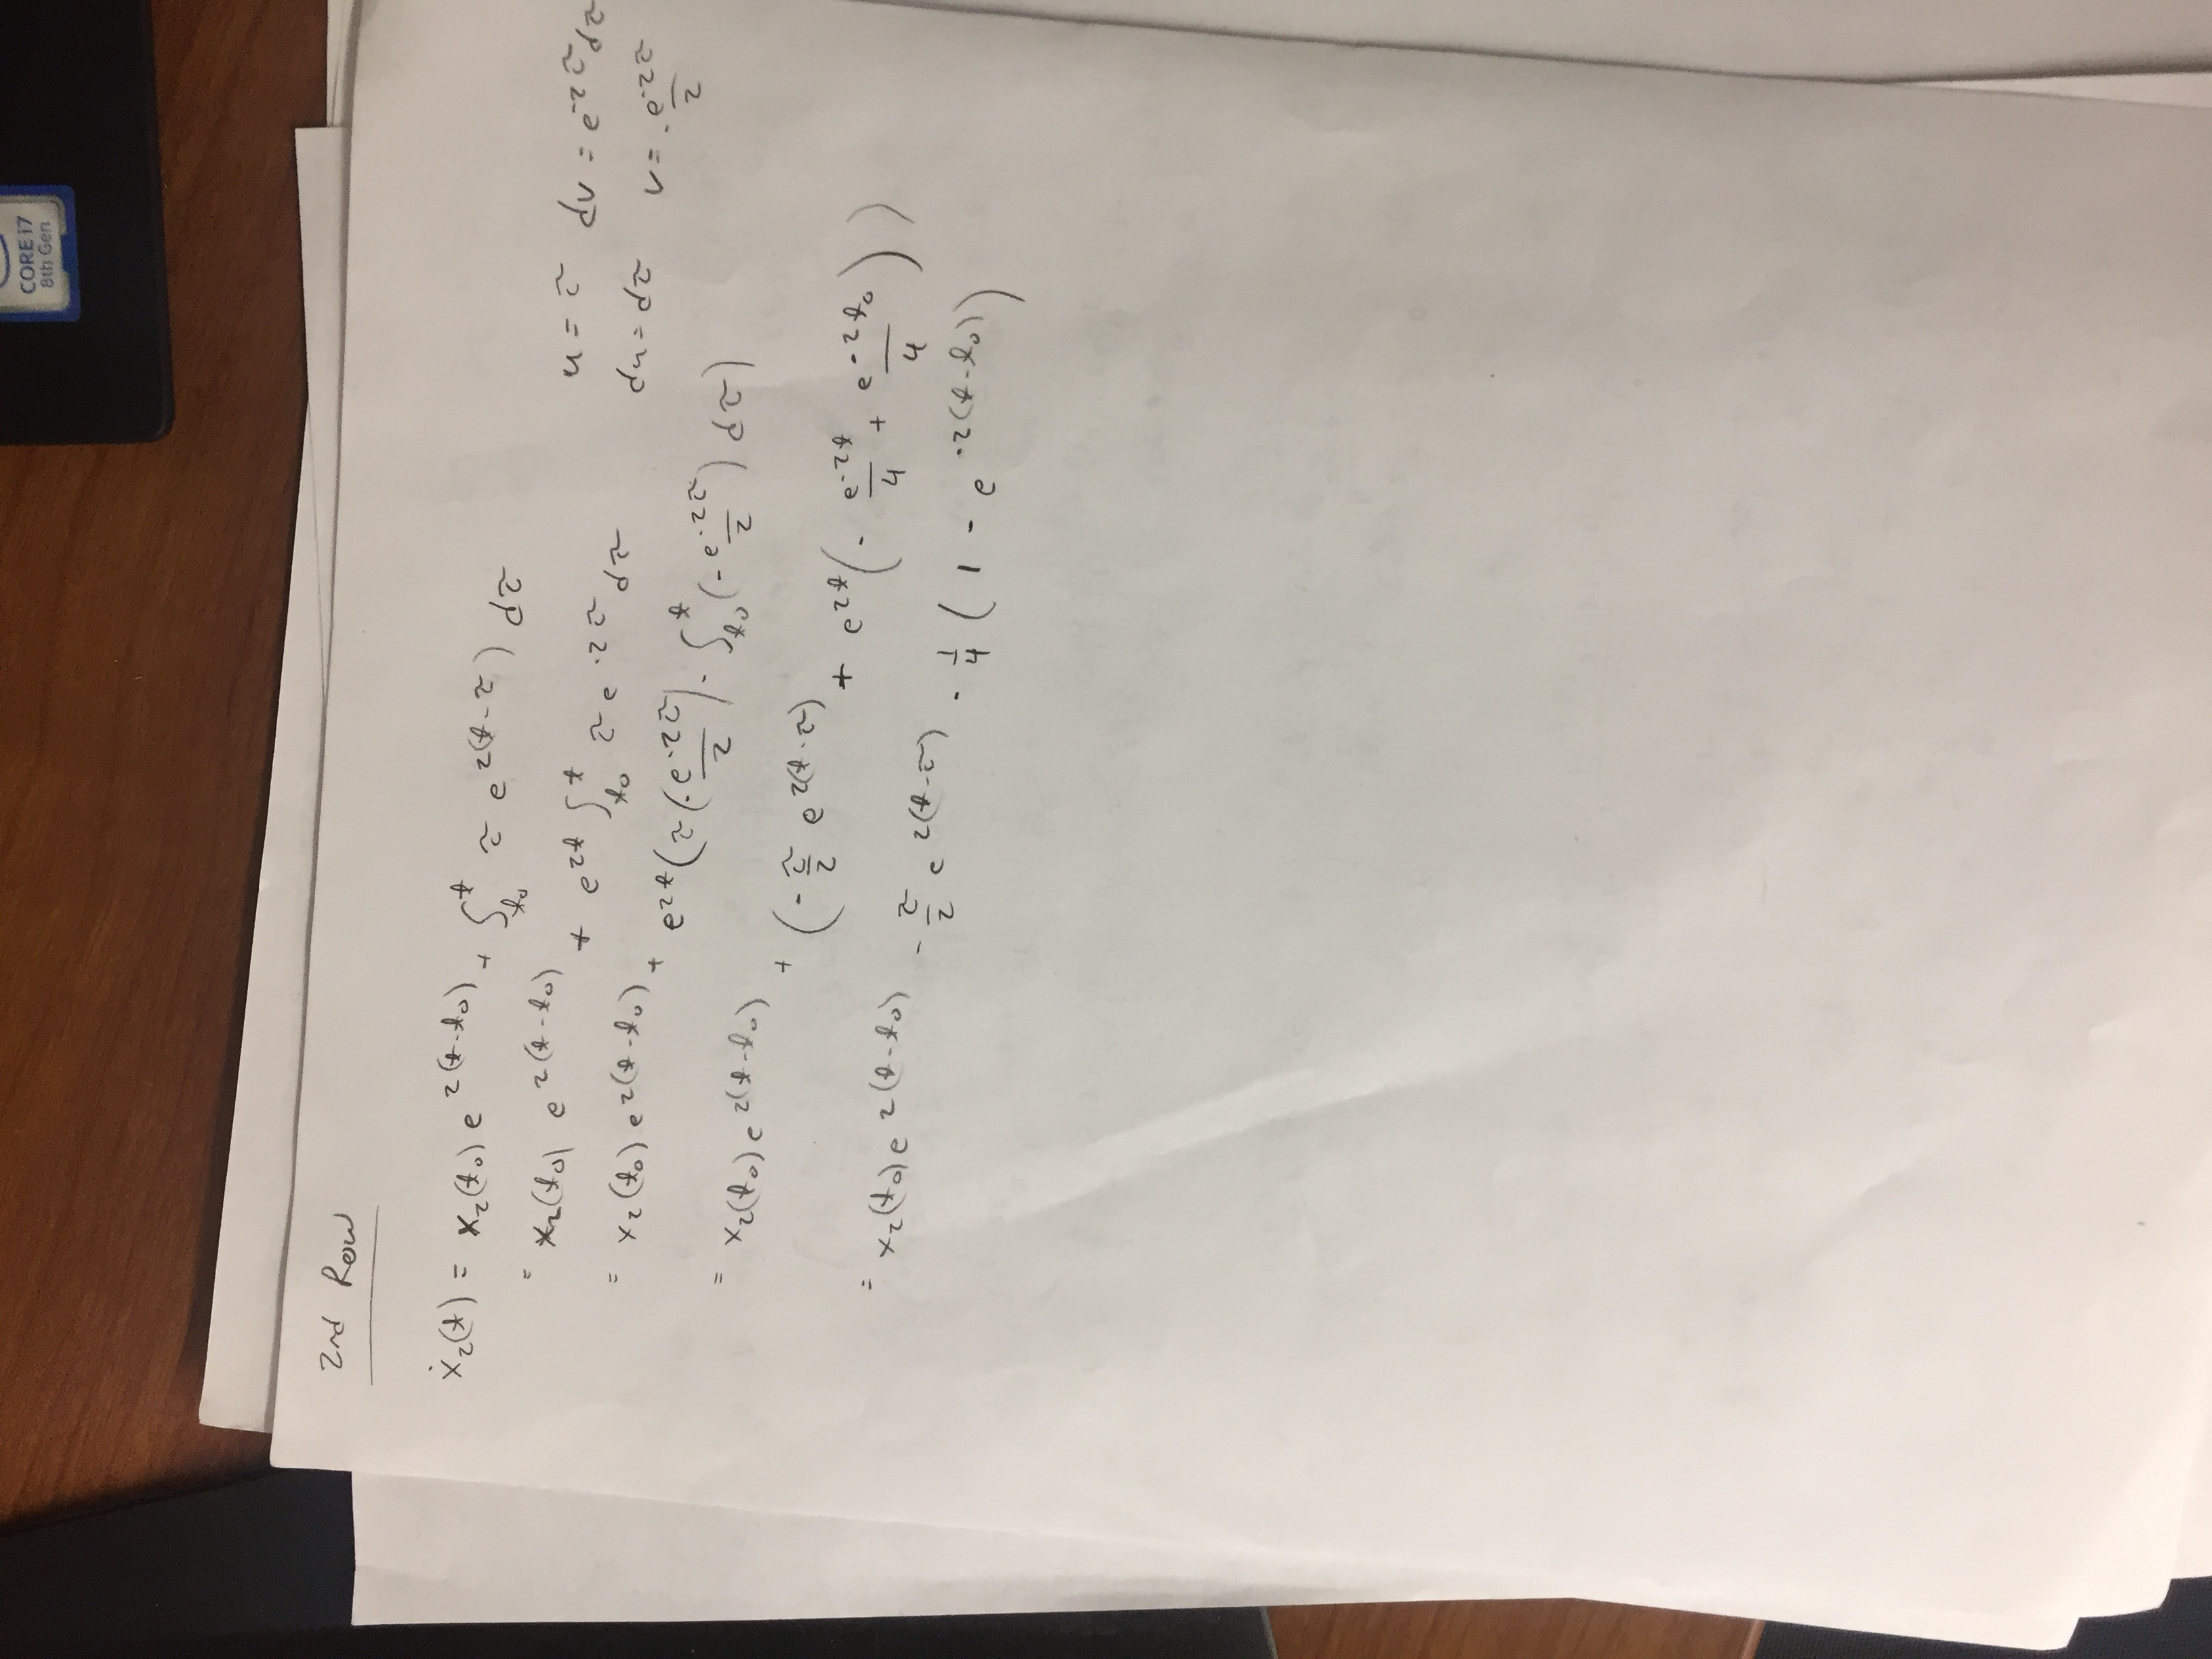 CORE i7
8th Gen
2nd Row
ẋ₂(t) = x₂(t₀) e^{2(t-t₀)} + ∫_{t₀}^{t} τ e^{2(t-τ)} dτ
= x₂(t₀) e^{2(t-t₀)} + e^{2t} ∫_{t₀}^{t} τ e^{-2τ} dτ
u = τ dv = e^{-2τ} dτ
= x₂(t₀) e^{2(t-t₀)} + e^{2t} (τ (-e^{-2τ}/2) - ∫_{t₀}^{t} (-e^{-2τ}/2) dτ)
du = dτ v = -e^{-2τ}/2
= x₂(t₀) e^{2(t-t₀)} + (-τ/2 e^{2(t-τ)} + e^{2t} (-e^{-2t}/4 + e^{-2t₀}/4))
= x₂(t₀) e^{2(t-t₀)} - τ/2 e^{2(t-τ)} - 1/4 (1 - e^{-2(t-t₀)})